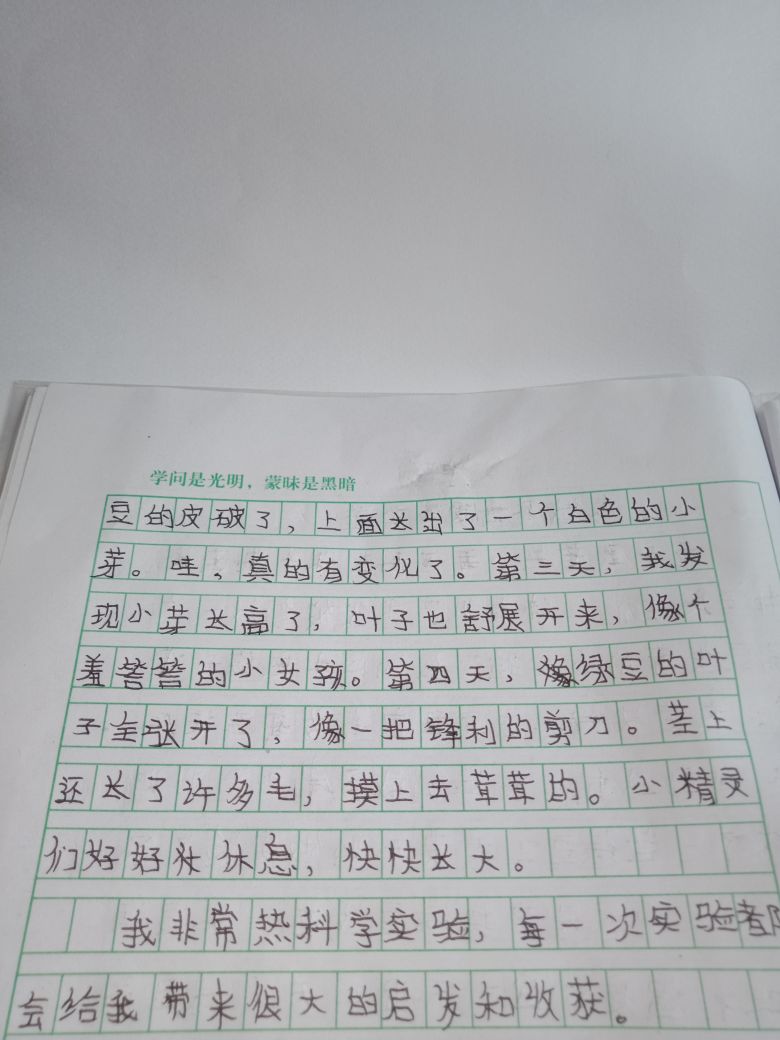 学问是光明，蒙昧是黑暗
豆的皮破了，上面长出了一个白色的小
芽。哇，真的有变化了。第三天，我发
现小芽长高了，叶子也舒展开来，像个
羞答答的小女孩。第四天，绿豆的叶
子全张开了，像一把锋利的剪刀。茎上
还长了许多毛，摸上去茸茸的。小精灵
们好好休息，快快长大。
我非常热科学实验，每一次实验都
会给我带来很大的启发和收获。